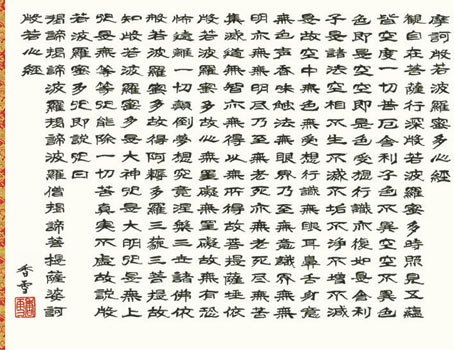 摩訶般若波羅蜜多心經
觀自在菩薩行深般若波羅蜜多時照見五蘊
皆空度一切苦厄舍利子色不異空空不異色
色即是空空即是色受想行識亦復如是舍利
子是諸法空相不生不滅不垢不淨不增不減
是故空中無色無受想行識無眼耳鼻舌身意
無色聲香味觸法無眼界乃至無意識界無無
明亦無無明盡乃至無老死亦無老死盡無苦
集滅道無智亦無得以無所得故菩提薩埵依
般若波羅蜜多故心無罣礙無罣礙故無有恐
怖遠離一切顛倒夢想究竟涅槃三世諸佛依
般若波羅蜜多故得阿耨多羅三藐三菩提故
知般若波羅蜜多是大神咒是大明咒是無上
咒是無等等咒能除一切苦真實不虛故說般
若波羅蜜多咒即說咒曰
揭諦揭諦波羅揭諦波羅僧揭諦菩提薩婆訶
般若心經
香雪